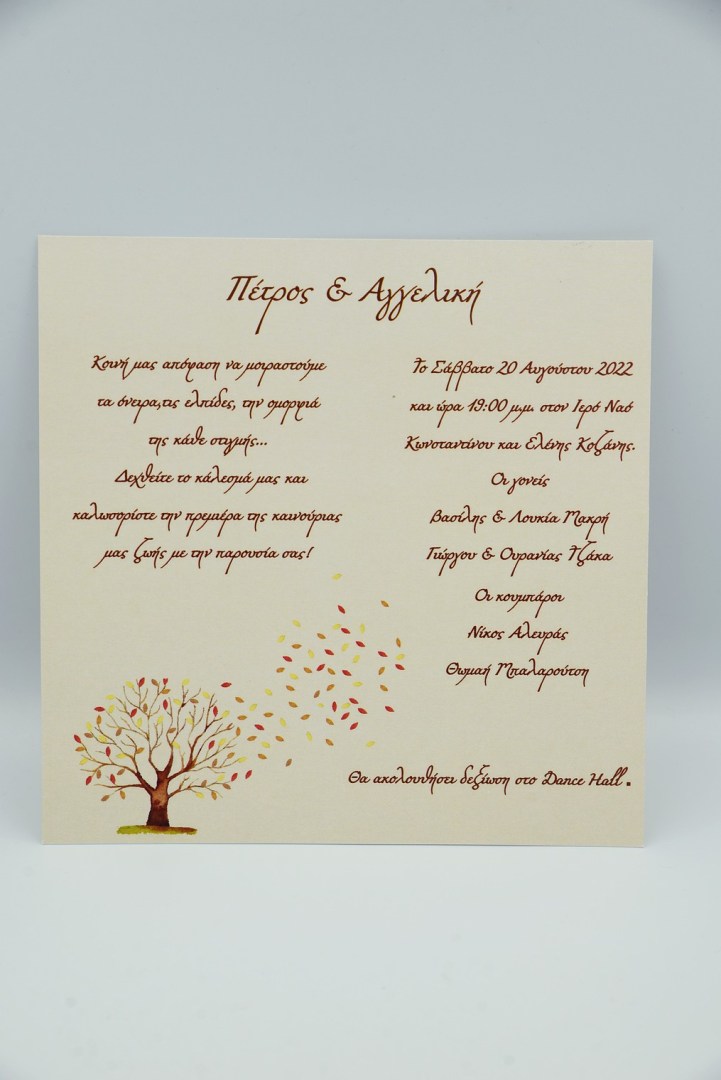 Πέτρος & Αγγελική
Κοινή μας απόφαση να μοιραστούμε
τα όνειρα,τις ελπίδες, την ομορφιά
της κάθε στιγμής...
Δεχθείτε το κάλεσμά μας και
καλωσορίστε την πρεμιέρα της καινούριας
μας ζωής με την παρουσία σας!
Το Σάββατο 20 Αυγούστου 2022
και ώρα 19:00 μ.μ. στον Ιερό Ναό
Κωνσταντίνου και Ελένης Κοζάνης.
Οι γονείς
Βασίλης & Λουκία Μακρή
Γιώργου & Ουρανίας Τζάκα
Οι κουμπάροι
Νίκος Αλευράς
Θωμαή Μπαλαρούτση
Θα ακολουθήσει δεξίωση στο Dance Hall.